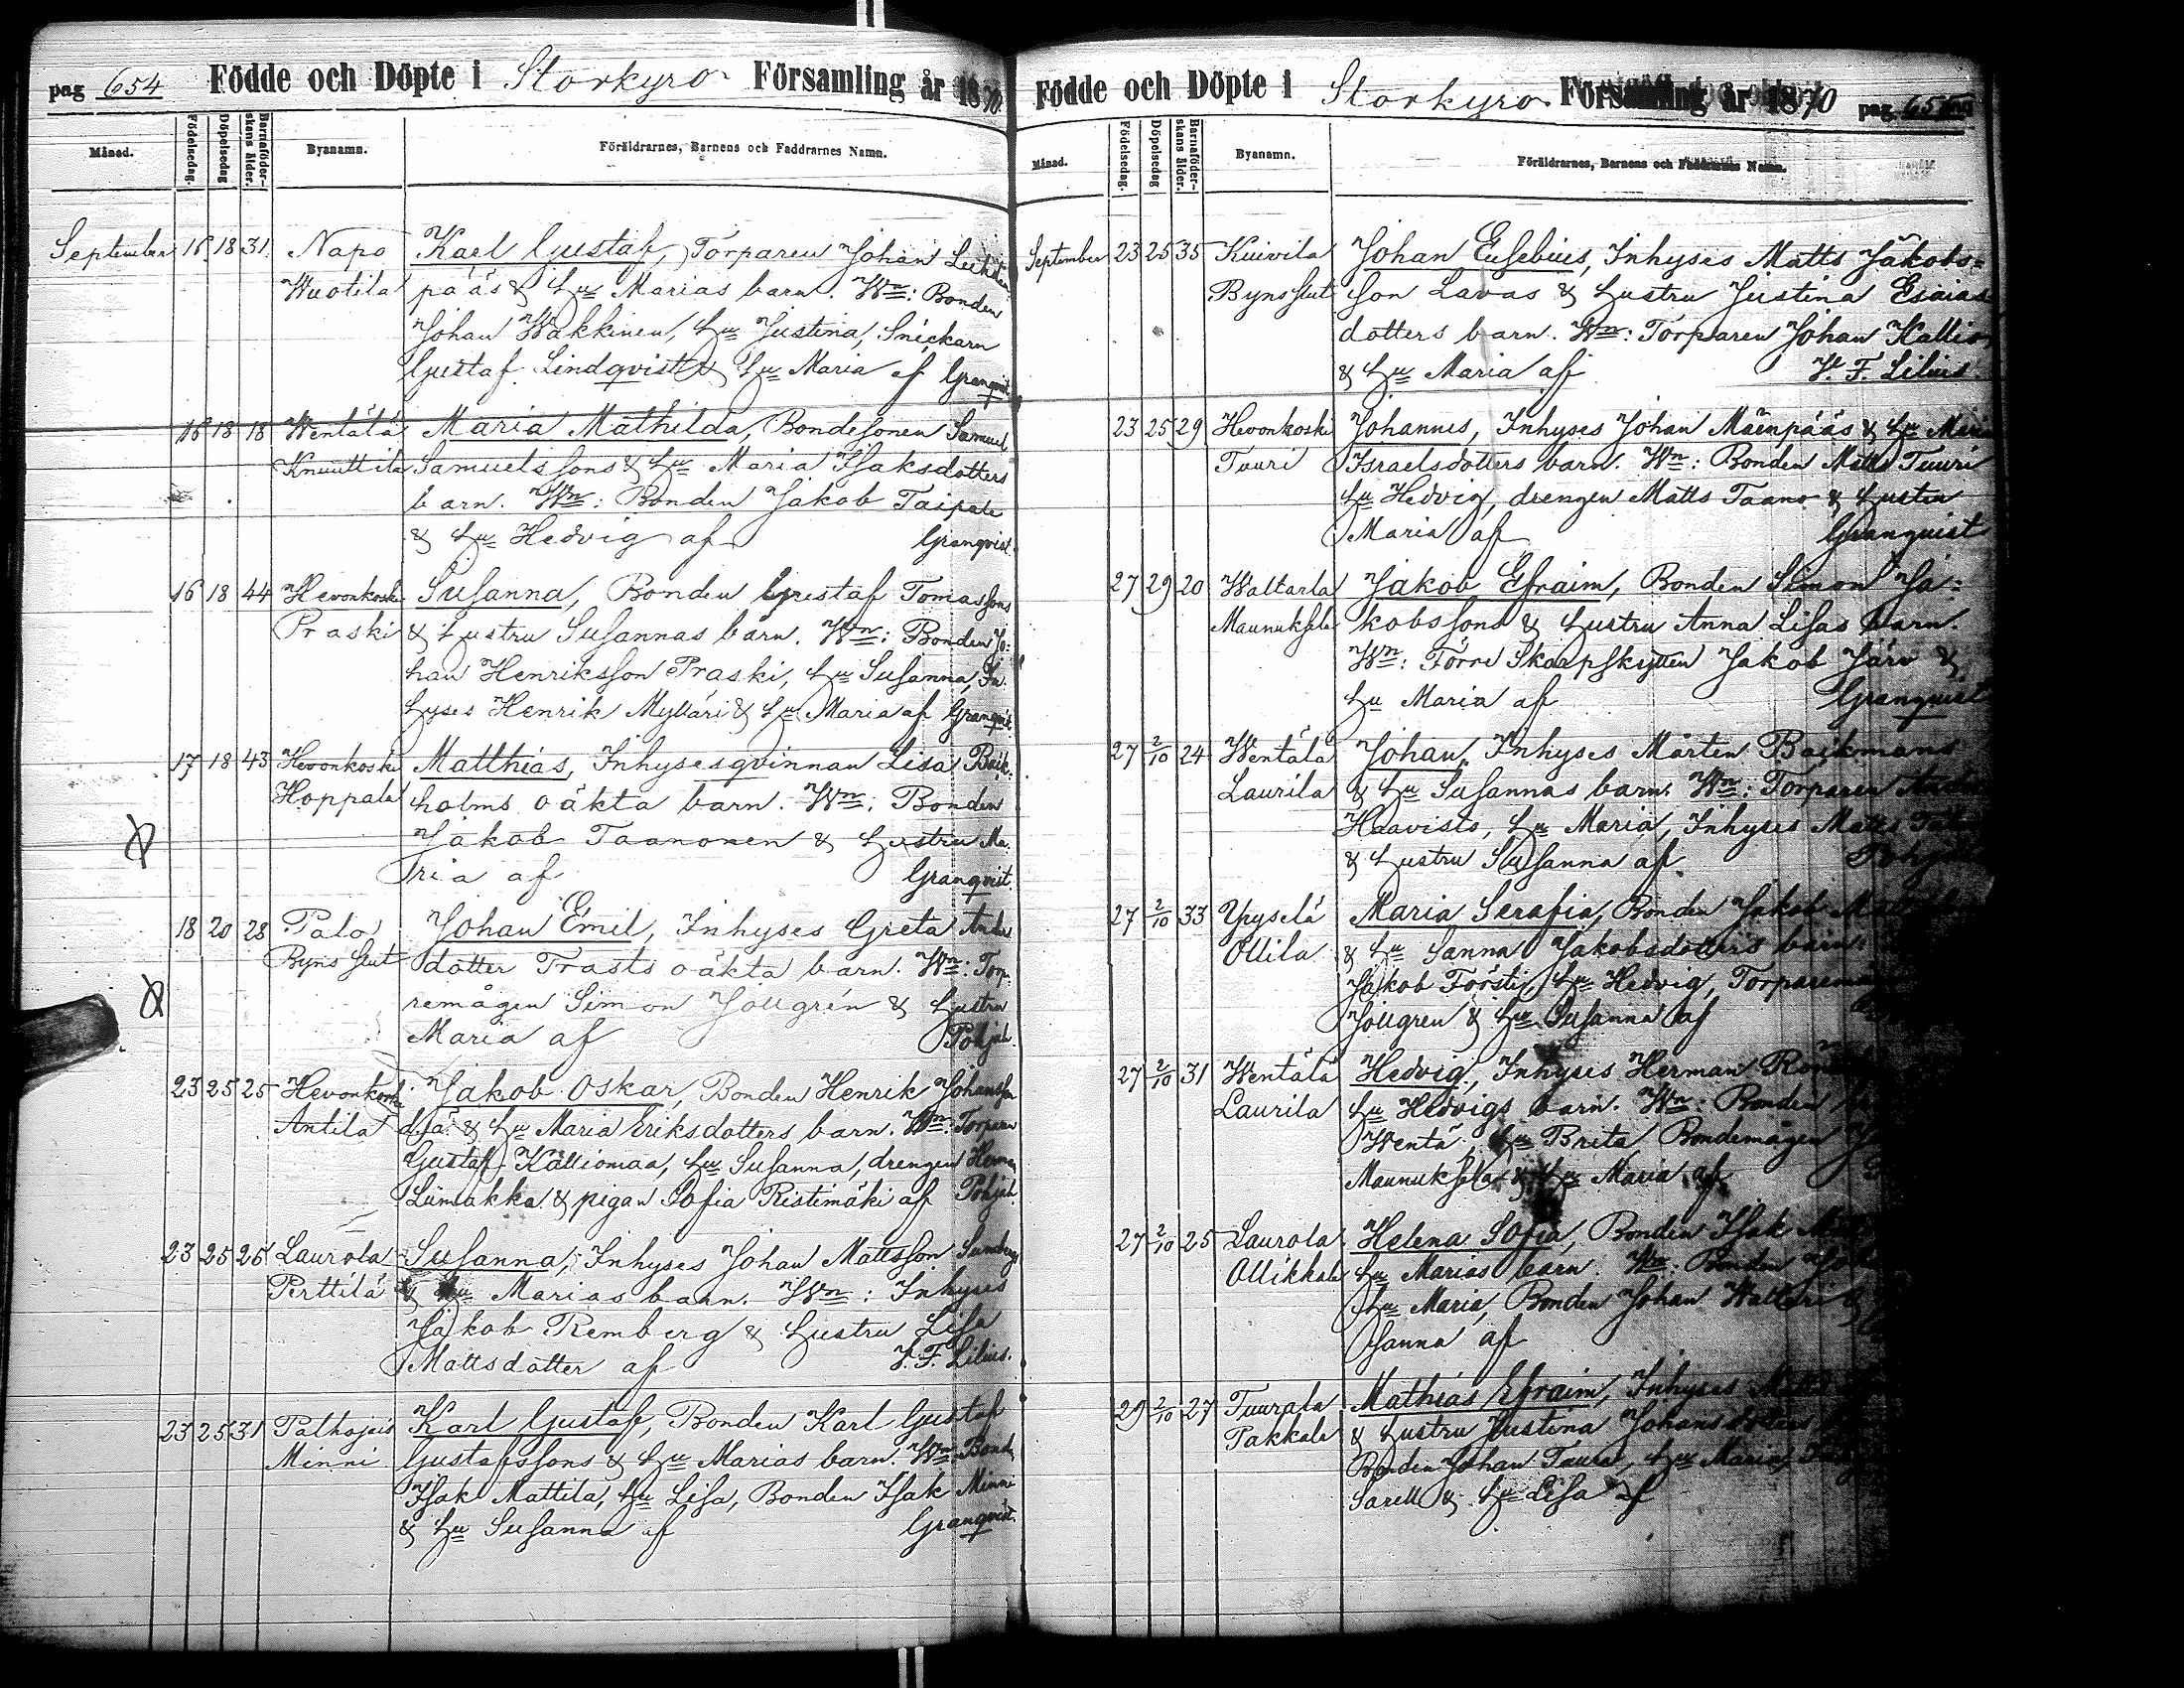 pag 654 Födde och Döpte i Storkyro Församling år 1870
Månad. Födelsedag. Döpelsedag Barnaföderskans ålder. Byanamn. Föräldrarnes, Barnens och Faddrarnes Namn.
September 16 18 31. Napo Karl Gustaf, Torparen Johan
Wuotila pääs & Hu Marias barn. Wn: Bonden
Johan Wakkinen, Hu Justina, Snickarn
Gustaf Lindqvist & Hu Maria af Granqvist
16 18 18 Wentälä Maria Mathilda, Bondesonen Samuel
Knuuttila Samuelssons & Hu Maria Isaksdotters
barn. Wn: Bonden Jakob Taipale
& Hu Hedvig af Granqvist.
16 18 44 Hevonkoski Susanna, Bonden Gustaf Tomassons
Praski & Hustru Susannas barn. Wn: Bonden Jo=
han Henriksson Praski, Hu Susanna, In=
hyses Henrik Mylläri & Hu Maria af Granqvist
17 18 43 Hevonkoski Matthias, Inhysesqvinnan Lisa Back=
Hoppala holms oäkta barn. Wn: Bonden
Jakob Taanonen & Hustru Ma=
ria af Granqvist.
18 20 28 Palo Johan Emil, Inhyses Greta Anders
Byns slut dotter Trasts oäkta barn. Wn: Torp=
remågen Simon Jollgrén & Hustru
Maria af Pohjal.
23 25 25 Hevonkoski Jakob Oskar, Bonden Henrik Johansson
Antila d.ä. & Hu Maria Eriksdotters barn. Wn: Torparen
Gustaf Kalliomaa, Hu Susanna, drengen Herman
Liimakka & pigan Sofia Ristimäki af Pohjal.
23 25 25 Laurola Susanna, Inhyses Johan Mattsson Sundberg
Perttilä & Hu Marias barn. Wn: Inhyses
Jakob Remberg & Hustru Lisa
Mattsdotter af V. F. Lilius.
23 25 31 Palhojais Karl Gustaf, Bonden Karl Gustaf
Minni Gustafssons & Hu Marias barn. Wn Bond
Isak Mattila, Hu Lisa, Bonden Isak Minni
& Hu Susanna af Granqvist.
Födde och Döpte i Storkyro Församling år 1870 pag 655
Månad. Födelsedag. Döpelsedag Barnaföderskans ålder. Byanamn. Föräldrarnes, Barnens och Faddrarnes Namn.
September 23 25 35 Kuivila Johan Eusebius, Inhyses Matts Jakobs=
Byns slut son Lavas & Hustru Justina Esaias
dotters barn. Wn: Torparen Johan Kallio
& Hu Maria af V. F. Lilius.
23 25 29 Hevonkoski Johannes, Inhyses Johan Mäenpääs & Hu Maria
Tuuri Israelsdotters barn. Wn: Bonden Matts Tuuri
Hu Hedvig, drengen Matts Taano & Hustru
Maria af Granquist
27 29 20 Waltarla Jakob Efraim, Bonden Simon Ja=
Maunuksela kobssons & Hustru Anna Lisas barn.
Wn: Förre Skarpskytten Jakob Järv &
Hu Maria af Granquist
27 2/10 24 Wentälä Johan, Inhyses Mårten Backmans
Laurila & Hu Susannas barn. Wn: Torparen
Haavisto, Hu Maria, Inhyses Matts
& Hustru Susanna af
27 2/10 33 Yryselä Maria Serafia, Bonden Jakob
Ollila & Hu Sanna Jakobsdotters barn
Jakob Försti, Hu Hedvig, Torparem
Jollgren & Hu Susanna af
27 2/10 31 Wentälä Hedvig, Inhyses Herman
Laurila Hu Hedvigs barn. Wn: Bonden
Wentä, Hu Brita Bondemågen
Maunuksela & Hu Maria af
27 2/10 25 Laurola Helena Sofia, Bonden Isak
Ollikkala Hu Marias barn. Wn: Bonden
Hu Maria, Bonden Johan Waltari &
Sanna af
29 2/10 27 Tuurala Mathias Efraim, Inhyses Matts
Pakkala & Hustru Justina Johansdotters
Bonden Johan Tuura, Hu Maria,
Sarell & Hu Lisa af